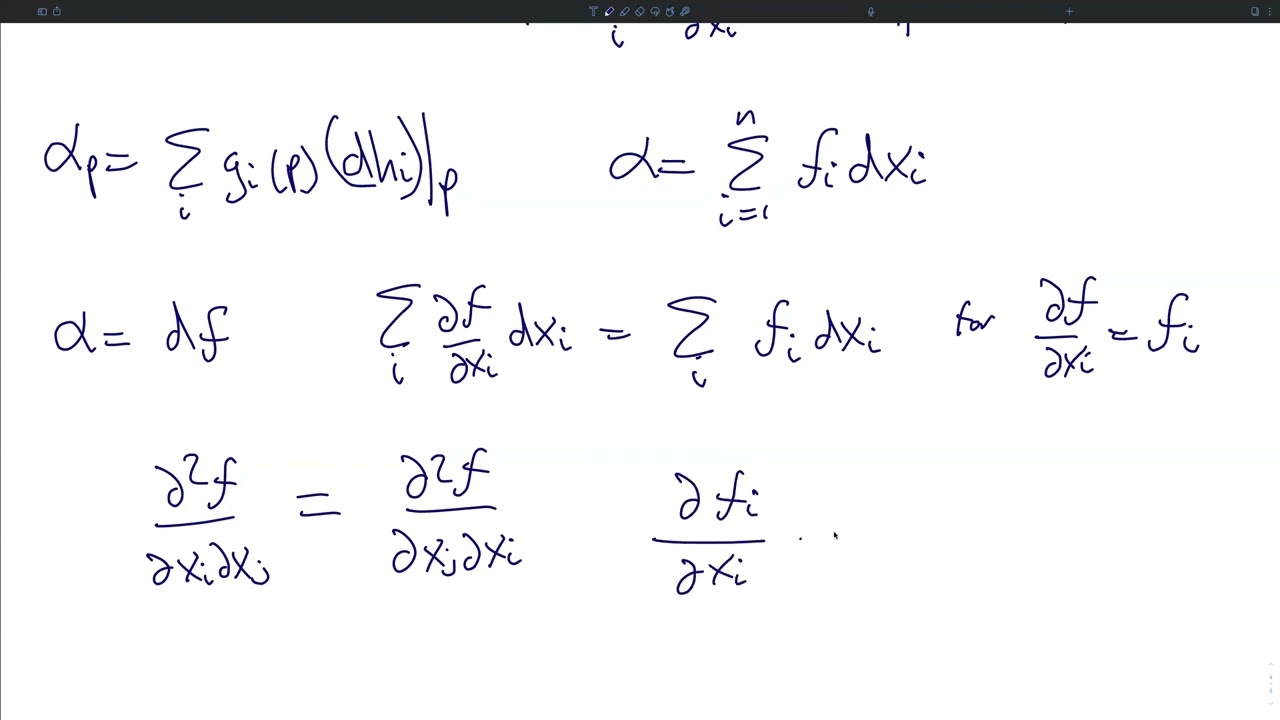 i ∂xi
αp = ∑i gi(p)(dhi)|p α = ∑_{i=1}^{n} fi dxi
α = df ∑i ∂f/∂xi dxi = ∑i fi dxi for ∂f/∂xi = fi
∂²f/∂xi∂xj = ∂²f/∂xj∂xi ∂fi/∂xi